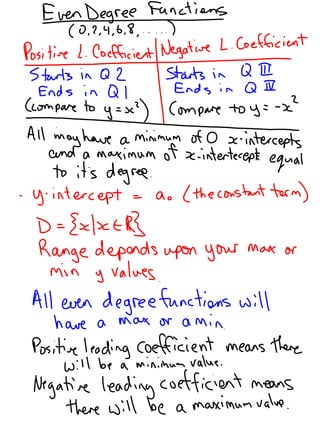 Even Degree Functions
(0,2,4,6,8,.....)
Positive L. Coefficient Negative L. Coefficient
Starts in Q 2 Starts in Q III
Ends in Q 1 Ends in Q IV
(compare to y=x²) (compare to y=-x²
All may have a minimum of 0 x-intercepts
and a maximum of x-intertecept equal
to it's degree.
- y-intercept = a₀ (the constant term)
D={x|x∈ℝ}
Range depends upon your max or
min y values.
All even degree functions will
have a max or a min.
Positive leading coefficient means there
will be a minimum value.
Negative leading coefficient means
there will be a maximum value.